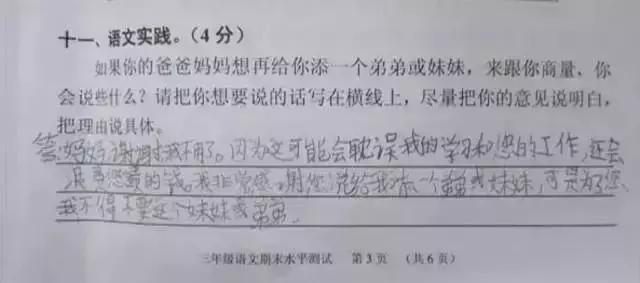 十一、语文实践。(4分)
如果你的爸爸妈妈想再给你添一个弟弟或妹妹，来跟你商量，你
会说些什么？请把你想要说的话写在横线上，尽量把你的意见说明白，
把理由说具体。
答：妈妈谢谢我不用了。因为这可能会耽误我的学习和您的工作，还会
浪费您的钱。我非常感谢您说给我添一个弟弟或妹妹，可是为了您
我不得不要这个妹妹或弟弟。
三年级语文期末水平测试 第3页 (共6页)